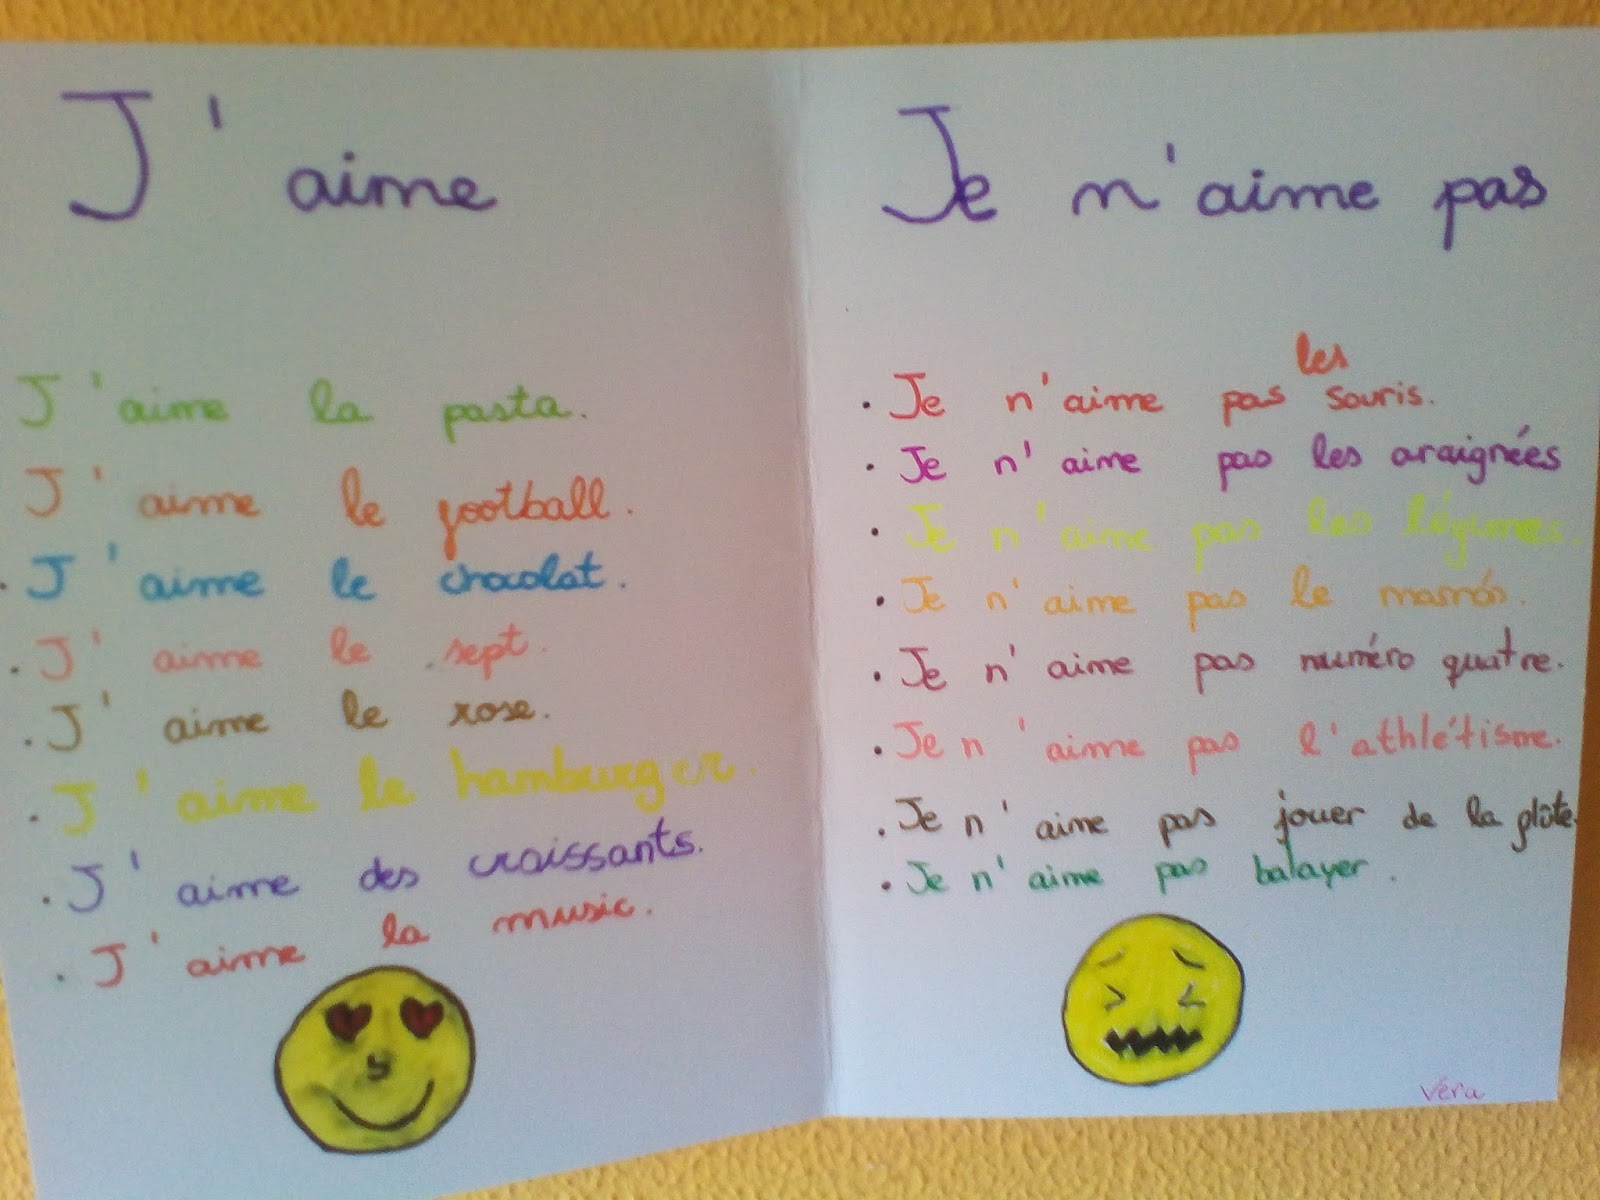 J'aime
J'aime la pasta.
J'aime le football.
J'aime le chocolat.
J'aime le sept.
J'aime le rose.
J'aime le hamburger.
J'aime des croissants.
J'aime la music.
Je n'aime pas
les
Je n'aime pas souris.
Je n'aime pas les araignées
Je n'aime pas les légumes.
Je n'aime pas le
Je n'aime pas numéro quatre.
Je n'aime pas l'athlétisme.
Je n'aime pas jouer de la plûte.
Je n'aime pas balayer.
Vera